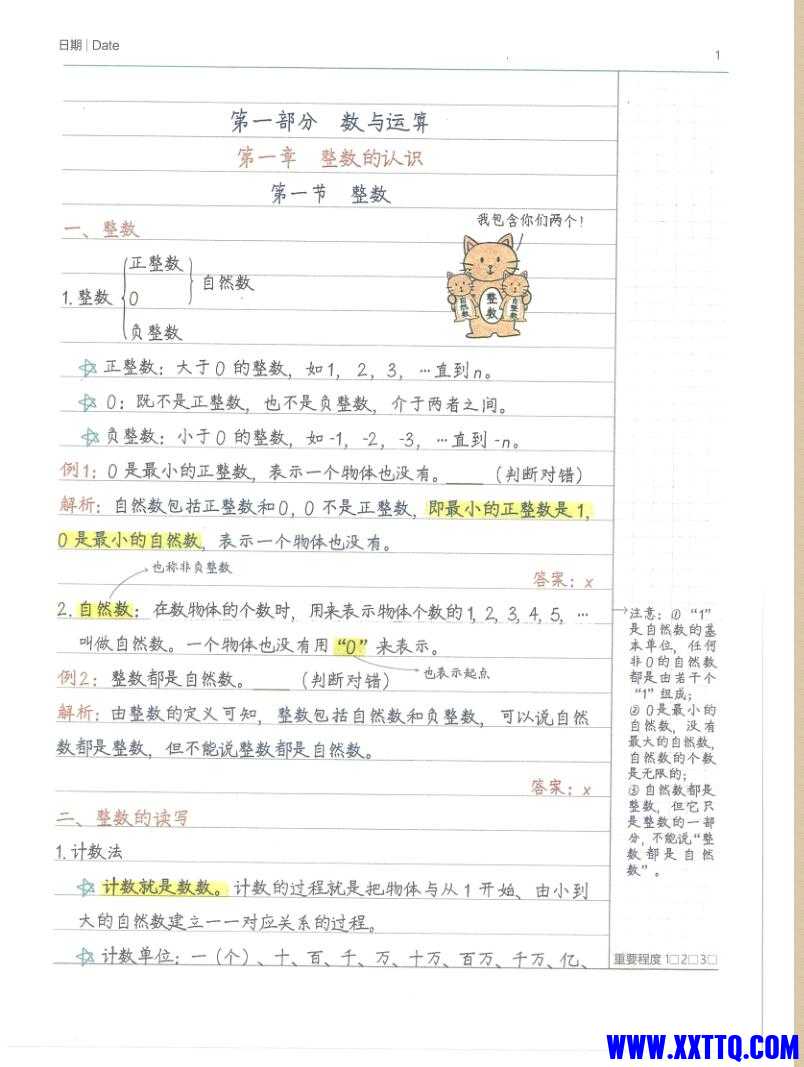 日期 | Date
1
第一部分 数与运算
第一章 整数的认识
第一节 整数
一、整数
我包含你们两个!
自然数
整数
自整数
1.整数
正整数
0
负整数
自然数
正整数:大于0的整数,如1,2,3,…直到n。
0:既不是正整数,也不是负整数,介于两者之间。
负整数:小于0的整数,如-1,-2,-3,…直到-n。
例1:0是最小的正整数,表示一个物体也没有。____(判断对错)
解析:自然数包括正整数和0,0不是正整数,即最小的正整数是1,
0是最小的自然数,表示一个物体也没有。
也称非负整数
答案:x
2.自然数:在数物体的个数时,用来表示物体个数的1,2,3,4,5,…
叫做自然数。一个物体也没有用“0”来表示。
也表示起点
例2:整数都是自然数。____(判断对错)
解析:由整数的定义可知,整数包括自然数和负整数,可以说自然
数都是整数,但不能说整数都是自然数。
答案:x
二、整数的读写
1.计数法
计数就是数数。计数的过程就是把物体与从1开始、由小到
大的自然数建立一一对应关系的过程。
计数单位:一(个)、十、百、千、万、十万、百万、千万、亿、
注意:①“1”
是自然数的基
本单位,任何
非0的自然数
都是由若干个
“1”组成;
②0是最小的
自然数,没有
最大的自然数,
自然数的个数
是无限的;
③自然数都是
整数,但它只
是整数的一部
分,不能说“整
数都是自然
数”。
重要程度 1□2□3□
WWW.XXTTQ.COM